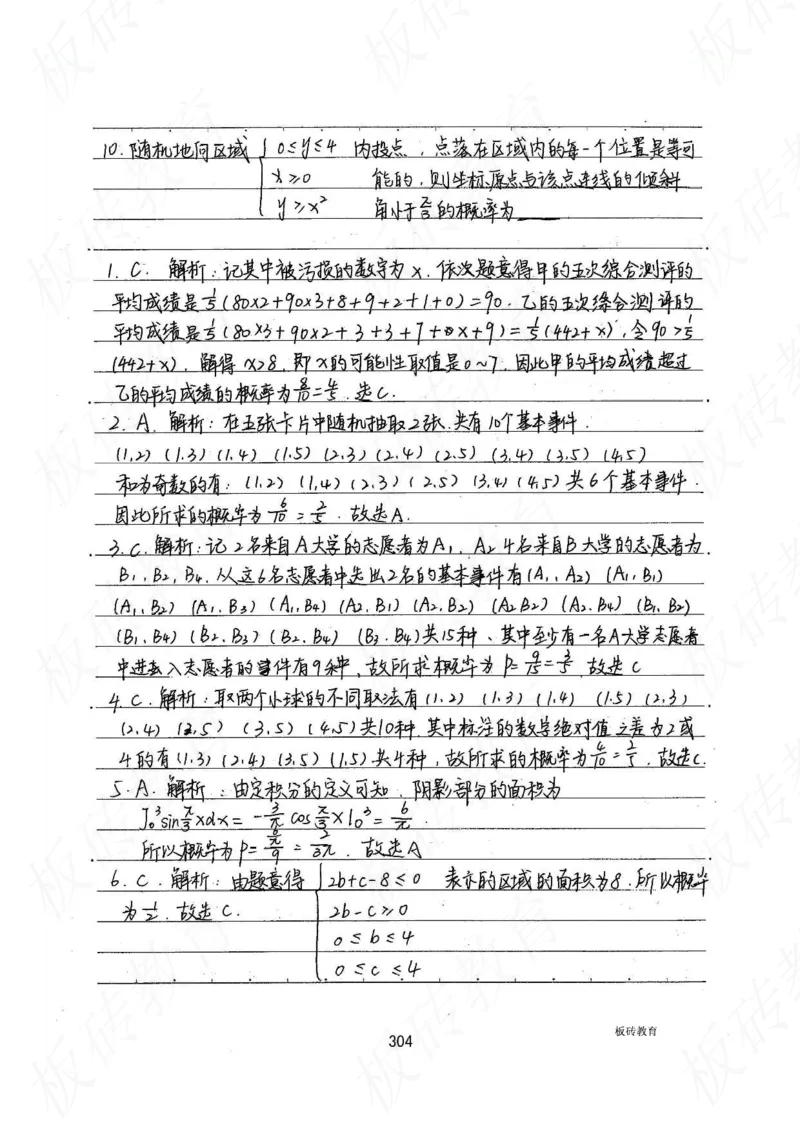 10. 随机地向区域 { 0≤y≤4 内投点，点落在区域内的每一个位置是等可
x≥0 能的，则坐标原点与该点连线的倾斜
y≥x² 角小于 的概率为____
1. C. 解析：记其中被污损的数字为 x. 依次题意得甲的五次综合测评的
平均成绩是1/5(80×2+90×3+8+9+2+1+0)=90. 乙的五次综合测评的
平均成绩是1/5(80×3+90×2+3+3+7+x+9)=1/5(442+x), 令90>1/5
(442+x). 解得 x>8. 即x的可能性取值是0~7. 因此甲的平均成绩超过
乙的平均成绩的概率为8/10=4/5. 选C.
2. A. 解析：在五张卡片中随机抽取2张. 共有10个基本事件.
(1,2) (1,3) (1,4) (1,5) (2,3) (2,4) (2,5) (3,4) (3,5) (4,5)
和为奇数的有：(1,2) (1,4) (2,3) (2,5) (3,4) (4,5) 共6个基本事件.
因此所求的概率为 6/10 = . 故选A.
3. C. 解析：记2名来自A大学的志愿者为A₁, A₂ 4名来自B大学的志愿者为
B₁, B₂, B₄. 从这6名志愿者中选出2名的基本事件有(A₁, A₂) (A₁, B₁)
(A₁, B₂) (A₁, B₃) (A₁, B₄) (A₂, B₁) (A₂, B₂) (A₂ B₂) (A₂, B₄) (B₁, B₂)
(B₁, B₄) (B₂, B₃) (B₂, B₄) (B₃, B₄)共15种、其中至少有一名A大学志愿者
中进入志愿者的事件有9种, 故所求概率为 P=9/15=3/5 故选C
4. C. 解析：取两个小球的不同取法有(1,2) (1,3) (1,4) (1,5) (2,3)
(2,4) (2,5) (3,5) (4,5)共10种 其中标注的数字绝对值之差为2或
4的有(1,3) (2,4) (3,5) (1,5)共4种，故所求的概率为4/10=2/5. 故选C.
5. A. 解析：由定积分的定义可知. 阴影部分的面积为
∫₀³sinπ/3xdx = -3/π cosπ/3x|₀³ = 6/π.
所以概率为P=(6/π)/9 = 2/3π. 故选A
6. C. 解析：由题意得 { 2b+c-8≤0 表示的区域的面积为8. 所以概率
为1/2. 故选C. 2b-c≥0
0≤b≤4
0≤c≤4
板砖教育
304